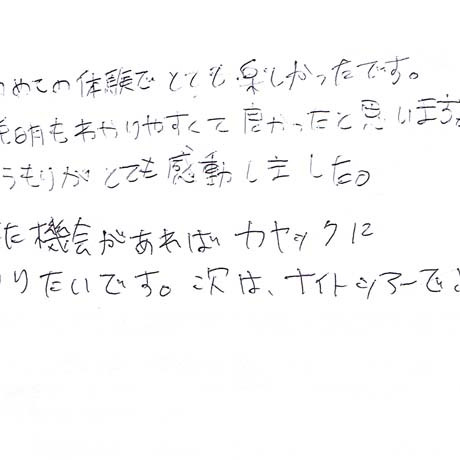 めての体験でとても楽しかったです。
説明もわかりやすくて良かったと思います。
うもりがとても感動しました。
た機会があればカヤックに
りたいです。次は、ナイトツアーで